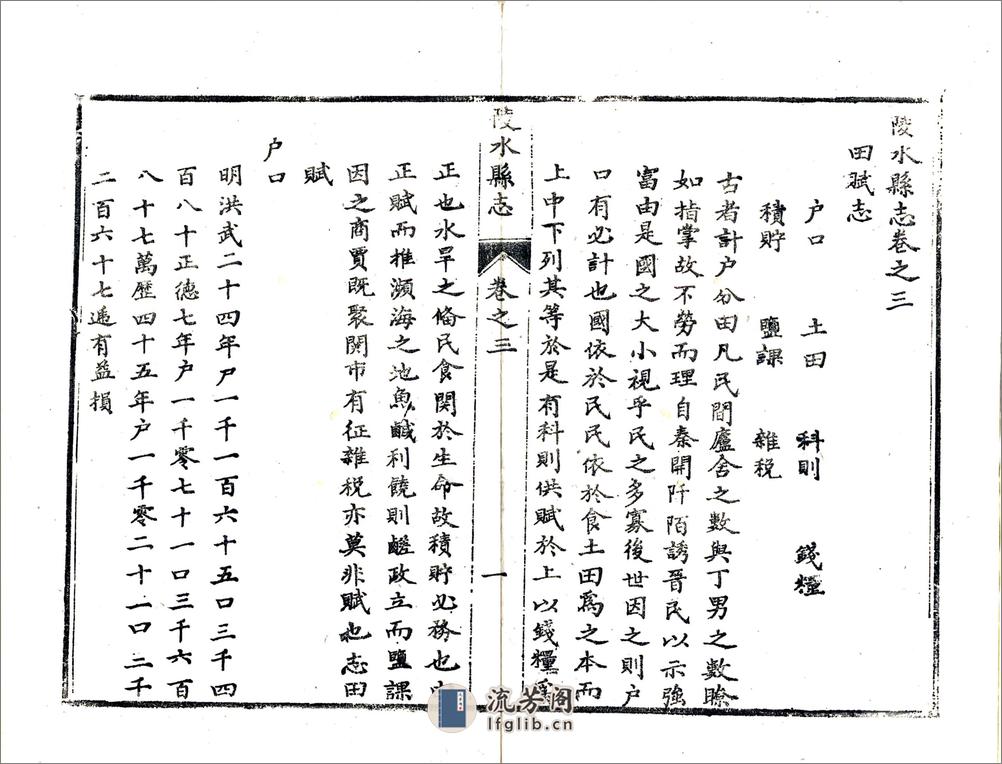 陵水縣志卷之三
田賦志
户口 土田 科則 錢糧
積貯 鹽課 雜税
古者計户分田凡民間廬舍之數與丁男之數瞭
如指掌故不勞而理自秦開阡陌誘晉民以示強
富由是國之大小視乎民之多寡後世因之則户
口有必計也國依於民民依於食土田爲之本而
上中下列其等於是有科則供賦於上以錢糧爲
陵水縣志 卷之三 一
正也水旱之偹民食関於生命故積貯必務也由
正賦而推瀕海之池魚鹹利饒則鹺政立而鹽課
因之商賈既聚関市有征雜税亦莫非賦也志田
賦
户口
明洪武二十四年户一千一百六十五口三千四
百八十正德七年户一千零七十一口三千六百
八十七萬歷四十五年户一千零二十一口二千
二百六十七逓有益損
流芳阁
lfglib.cn